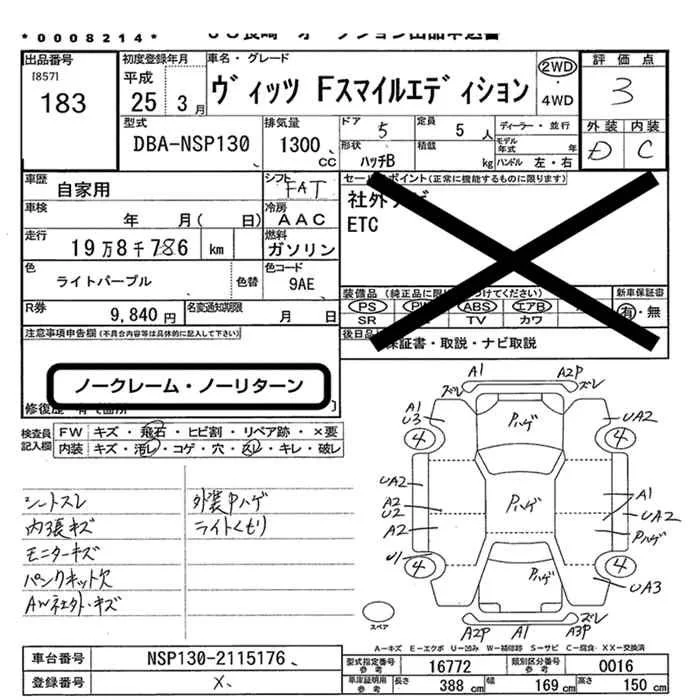 *0008214*
出品番号 [857] 183
初度登録年月 平成 25 3月
車名・グレード ヴィッツ Fスマイルエディション
2WD・4WD
評価点 3
外装 D 内装 C
型式 DBA-NSP130
排気量 1300 CC
ドア 5
定員 5 人
ディーラー・並行
モデル年式 年
形状 ハッチB
積載 kg
ハンドル 左・右
車歴 自家用
シフト FAT
セールスポイント(正常に機能するものに限ります)
社外ナビ
ETC
車検 年 月( 日)
冷房 AAC
走行 19万8千786 km
燃料 ガソリン
色 ライトパープル 色替
色コード 9AE
R券 9,840円
名変通知期限 月 日
装備品
新車保証書 有・無
PS ABS エアB
SR TV カワ
後日品 保証書・取説・ナビ取説
注意事項申告欄(不具合内容等は具体的に記入して下さい)
ノークレーム・ノーリターン
検査員記入欄
FW キズ・飛石・ヒビ割・リペア跡・×要
内装 キズ・汚レ・コゲ・穴・スレ・キレ・破レ
シートスレ
内張キズ
モニターキズ
パンクキット欠
AW社外・キズ
外装Pハゲ
ライトくもり
A1 A2P
ズレ ズレ
Pハゲ
A1
U3
UA2
4 4
UA2
A2
U2
A2
U1
Pハゲ
A1
UA2
Pハゲ
4 4
Pハゲ
UA3
ズレ ズレ
A2P A1 A3P
スペア
A=キズ E=エクボ U=凹み W=補修跡 S=サビ C=腐食 XX=交換済
車台番号 NSP130-2115176
登録番号 X
型式指定番号 参考 16772
類別区分番号 参考 0016
車庫証明用 参考 長さ 388 cm 幅 169 cm 高さ 150 cm